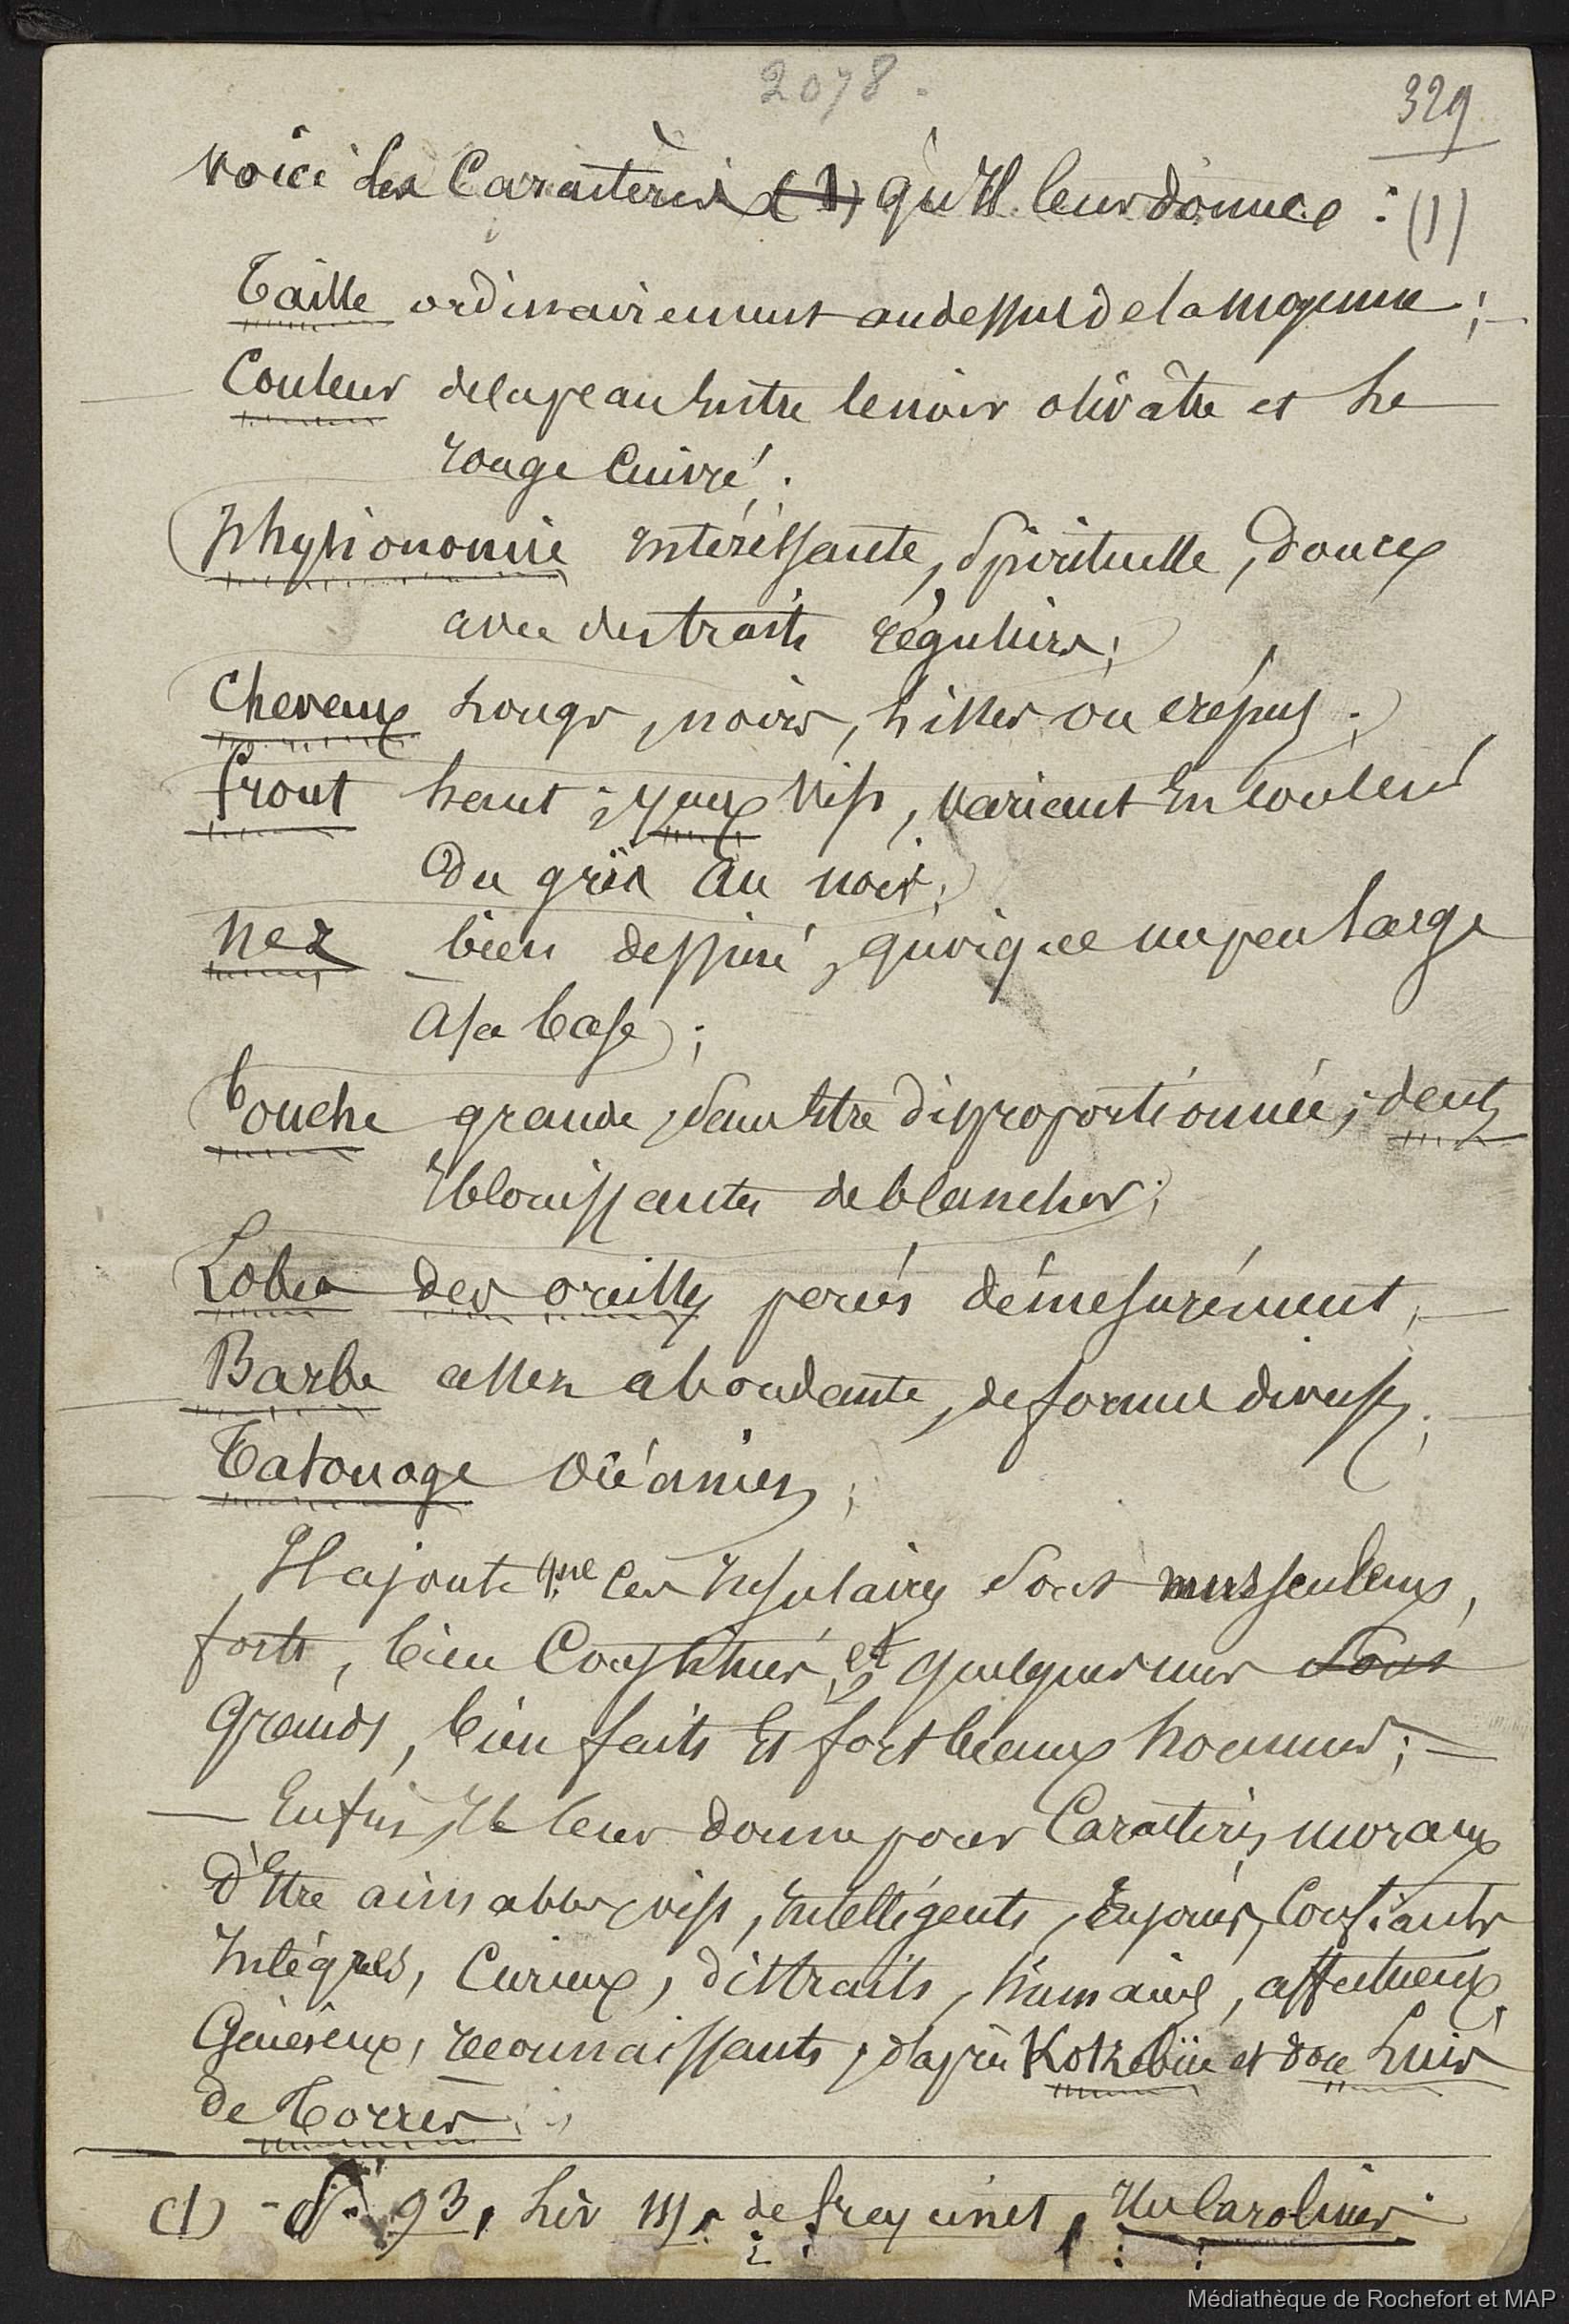 2078.
329
voici les Caractères (1) qu'Il leur donne : (1)
Taille ordinairement audessus de la moyenne ;
Couleur de la peau Entre le noir olivâtre et le
rouge Cuivré ;
physionomie Intéressante, Spirituelle, douce
avec des traits réguliers ;
cheveux Longs, noirs, lisses ou crépus ;
front haut ; yeux vifs, variant En Couleur
du gris au noir ;
nez bien dessiné, quoique un peu large
a sa base ;
bouche grande, sans Etre disproportionnée ; dents
Eblouissantes de blancheur ;
Lobes des oreilles percés démesurément,
Barbe assez abondante, de forme diverse ;
Tatouage océanien ;
Il ajoute que ces Insulaires sont musculeux,
forts, bien Constitués, et quelques uns sont
grands, bien faits Et fort beaux hommes ;
— Enfin, Il leur donne pour Caractères moraux
d'Etre aimables, vifs, Intelligents, Enjoués, Confiants
Intègres, Curieux, distraits, humains, affectueux,
Généreux, reconnaissants, d'après Kotzebüe et don Luis
de Torres ;
(1) - p. 93, Liv III, de freycinet, Iles Carolines.
Médiathèque de Rochefort et MAP